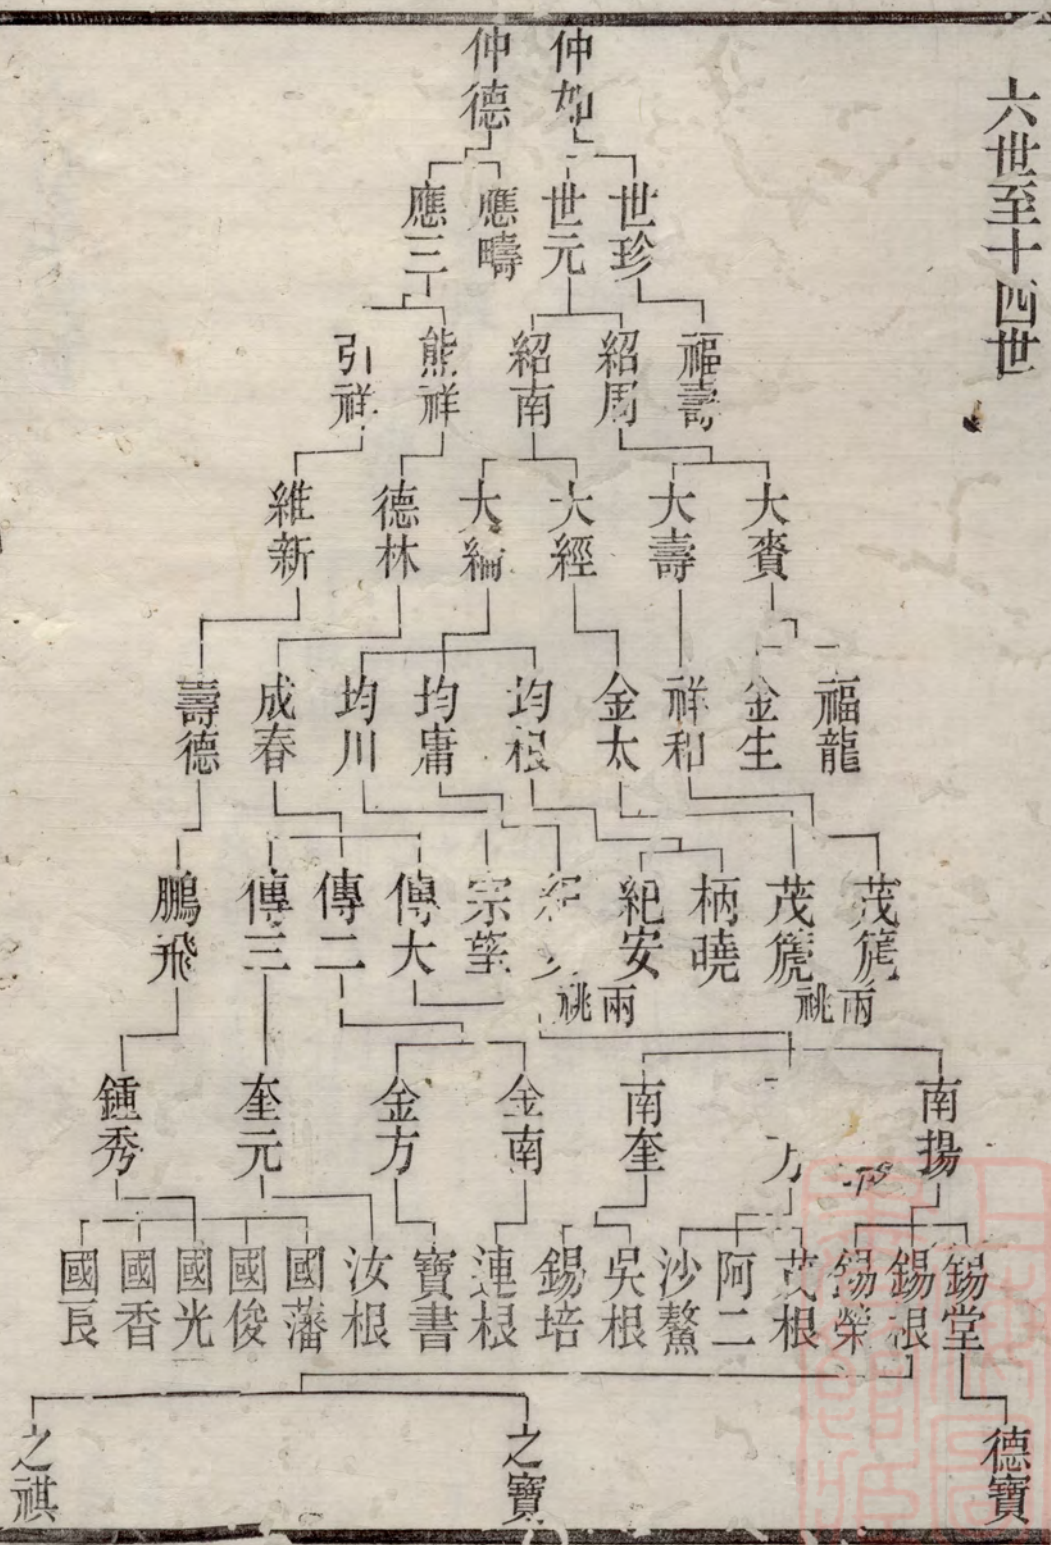 六世至十四世
仲如
仲德
世珍
世元
應疇
應三
福壽
紹周
紹南
熊祥
引祥
大賚
大壽
大經
大綸
德林
維新
福龍
金生
祥和
金太
均根
均庸
均川
成春
壽德
茂箎
兩祧
茂箎
柄曉
紀安
兩祧
宗望
傳大
傳二
傳三
鵬飛
南揚
方
南奎
金南
金方
奎元
鍾秀
錫堂
錫根
錫榮
茂根
阿二
沙鰲
吳根
錫培
連根
寶書
汝根
國藩
國俊
國光
國香
國良
德寶
之寶
之祺